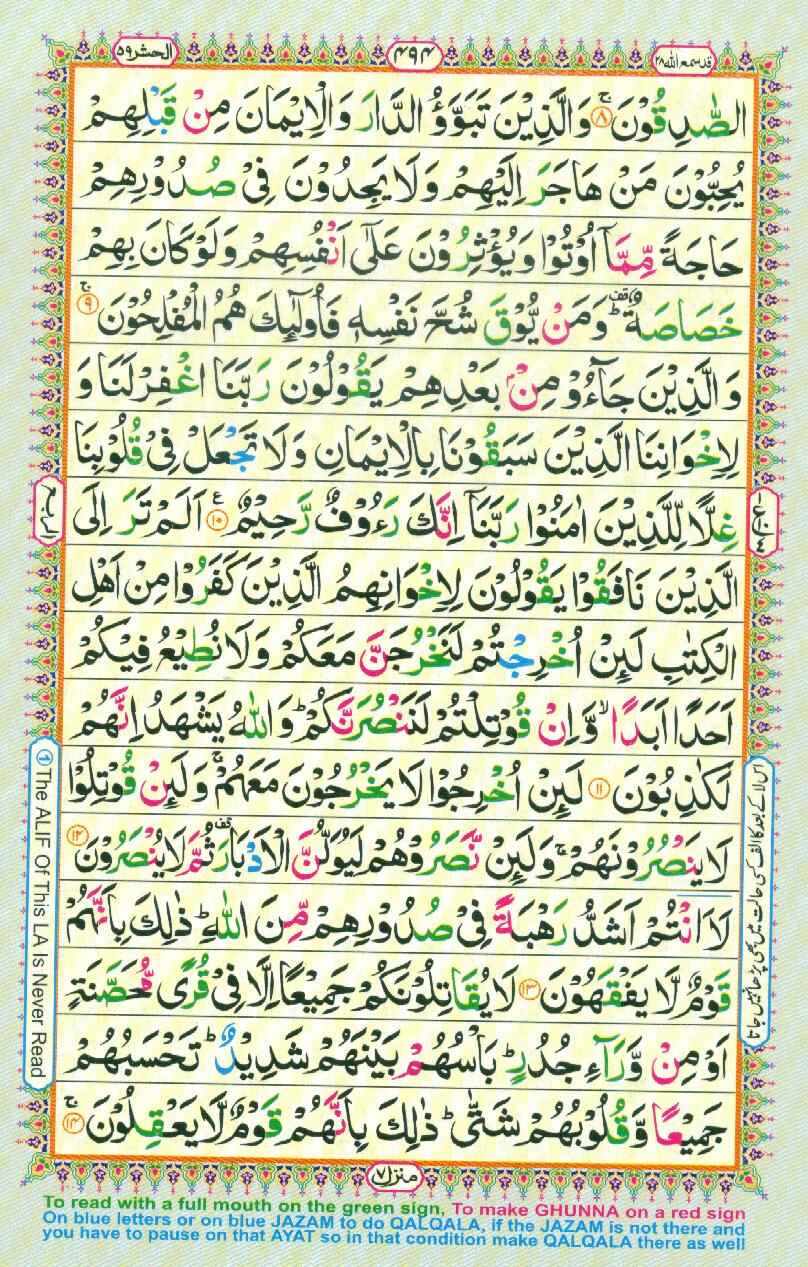 قد سمع الله ۲۸
۴۹۴
الحشر ۵۹
الصّٰدِقُوْنَ ۚ﴿۸﴾ وَالَّذِيْنَ تَبَوَّؤُ الدَّارَ وَالْاِيْمَانَ مِنْ قَبْلِهِمْ
يُحِبُّوْنَ مَنْ هَاجَرَ اِلَيْهِمْ وَلَا يَجِدُوْنَ فِيْ صُدُوْرِهِمْ
حَاجَةً مِّمَّآ اُوْتُوْا وَيُؤْثِرُوْنَ عَلٰٓى اَنْفُسِهِمْ وَلَوْ كَانَ بِهِمْ
خَصَاصَةٌ ؕ۫ وَمَنْ يُّوْقَ شُحَّ نَفْسِهٖ فَاُولٰٓئِكَ هُمُ الْمُفْلِحُوْنَ ۚ﴿۹﴾
وَالَّذِيْنَ جَآءُوْ مِنْۢ بَعْدِهِمْ يَقُوْلُوْنَ رَبَّنَا اغْفِرْ لَنَا وَ
لِاِخْوَانِنَا الَّذِيْنَ سَبَقُوْنَا بِالْاِيْمَانِ وَلَا تَجْعَلْ فِيْ قُلُوْبِنَا
غِلًّا لِّلَّذِيْنَ اٰمَنُوْا رَبَّنَآ اِنَّكَ رَءُوْفٌ رَّحِيْمٌ ﴿۱۰﴾ع اَلَمْ تَرَ اِلَى
الَّذِيْنَ نَافَقُوْا يَقُوْلُوْنَ لِاِخْوَانِهِمُ الَّذِيْنَ كَفَرُوْا مِنْ اَهْلِ
الْكِتٰبِ لَئِنْ اُخْرِجْتُمْ لَنَخْرُجَنَّ مَعَكُمْ وَلَا نُطِيْعُ فِيْكُمْ
اَحَدًا اَبَدًا ۙ وَّاِنْ قُوْتِلْتُمْ لَنَنْصُرَنَّكُمْ ؕ وَاللّٰهُ يَشْهَدُ اِنَّهُمْ
لَكٰذِبُوْنَ ﴿۱۱﴾ لَئِنْ اُخْرِجُوْا لَا يَخْرُجُوْنَ مَعَهُمْ ۚ وَلَئِنْ قُوْتِلُوْا
لَا يَنْصُرُوْنَهُمْ ۚ وَلَئِنْ نَّصَرُوْهُمْ لَيُوَلُّنَّ الْاَدْبَارَ ۫ ثُمَّ لَا يُنْصَرُوْنَ ﴿۱۲﴾
لَاَانْتُمْ اَشَدُّ رَهْبَةً فِيْ صُدُوْرِهِمْ مِّنَ اللّٰهِ ؕ ذٰلِكَ بِاَنَّهُمْ
قَوْمٌ لَّا يَفْقَهُوْنَ ﴿۱۳﴾ لَا يُقَاتِلُوْنَكُمْ جَمِيْعًا اِلَّا فِيْ قُرًى مُّحَصَّنَةٍ
اَوْ مِنْ وَّرَآءِ جُدُرٍ ؕ بَاْسُهُمْ بَيْنَهُمْ شَدِيْدٌ ؕ تَحْسَبُهُمْ
جَمِيْعًا وَّقُلُوْبُهُمْ شَتّٰى ؕ ذٰلِكَ بِاَنَّهُمْ قَوْمٌ لَّا يَعْقِلُوْنَ ۚ﴿۱۴﴾
الربع
① The ALIF Of This LA Is Never Read
اس لا کے بعد کا الف کسی حالت میں بھی پڑھا نہیں جاتا
منزل ۷
To read with a full mouth on the green sign, To make GHUNNA on a red sign
On blue letters or on blue JAZAM to do QALQALA, if the JAZAM is not there and
you have to pause on that AYAT so in that condition make QALQALA there as well